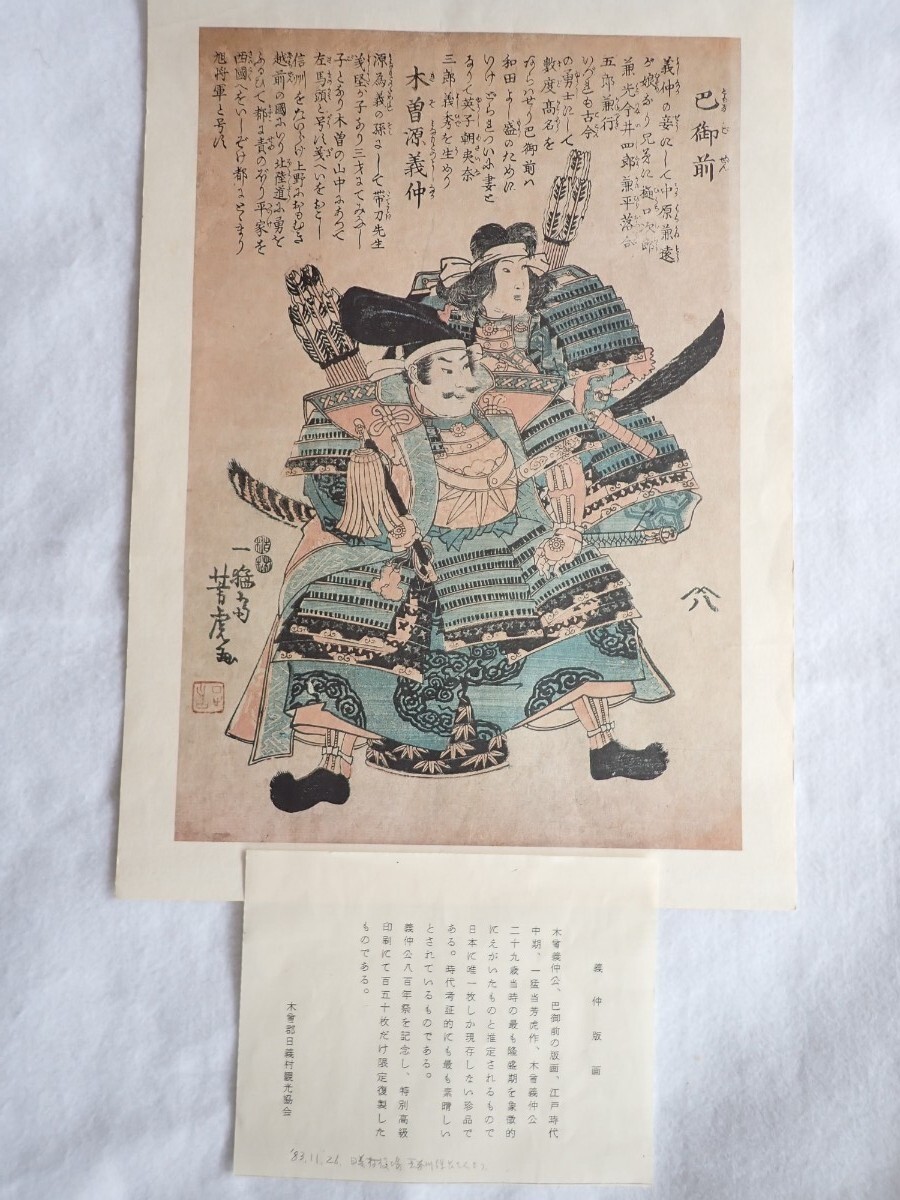 巴御前
義仲の妾にして中原兼遠
が娘なり兄弟に樋口次郎
兼光今井四郎兼平落合
五郎兼行
いづれも古今
の勇士にして
数度高名を
あらハせり巴御前ハ
和田よし盛のために
いけどられつひに妻と
なりて英子朝夷奈
三郎義秀を生めり
木曽源義仲
源為義の孫にして帯刀先生
義堅が子なり三才にてみなし
子となり木曽の山中にそだつて
左馬頭と号す義へいをおこし
信州をたいらげ上野におもむき
越前の國にいり北陸道に勇を
ふるひて都に責のぼり平家を
西國へをいしぞけ都にとどまり
旭将軍と号す
一猛斎
芳虎画
八
義仲版画
木曾義仲公、巴御前の版画、江戸時代
中期、一猛当芳虎作、木曾義仲公
二十九歳当時の最も隆盛期を象徴的
にえがいたものと推定されるもので
日本に唯一枚しか現存しない珍品で
ある。時代考証的にも最も素晴しい
とされているものである。
義仲公八百年祭を記念し、特別高級
印刷にて百五十枚だけ限定復製した
ものである。
木曾郡日義村観光協会
'83.11.26 日義村役場